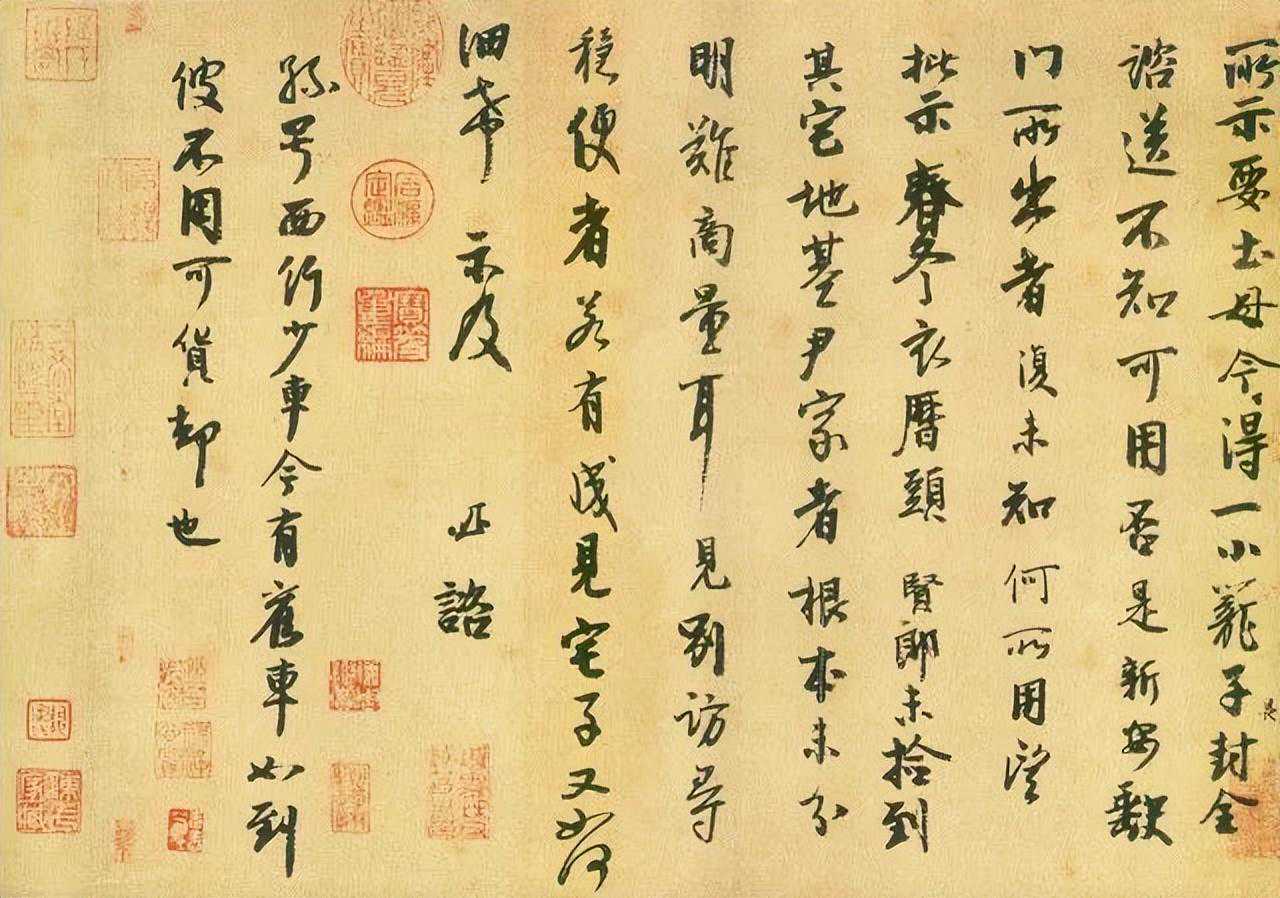 所示要土母今得一小籠子封全
諮送不知可用否是新安缺
门所出者復未知何所用望
批示春冬衣曆頭 賢郎未拾到
其宅地基尹家者根本未分
明難商量耳見別訪尋
穩便者若有成見宅子又如何
細希 示及 諮
孫号西行少車今有舊車如到
彼不用可貨却也